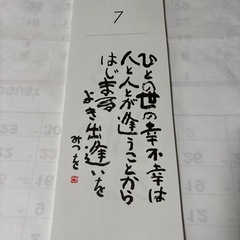 7
ひとの世の幸不幸は
人と人とが逢うことから
はじまる
よき出逢いを
みつを